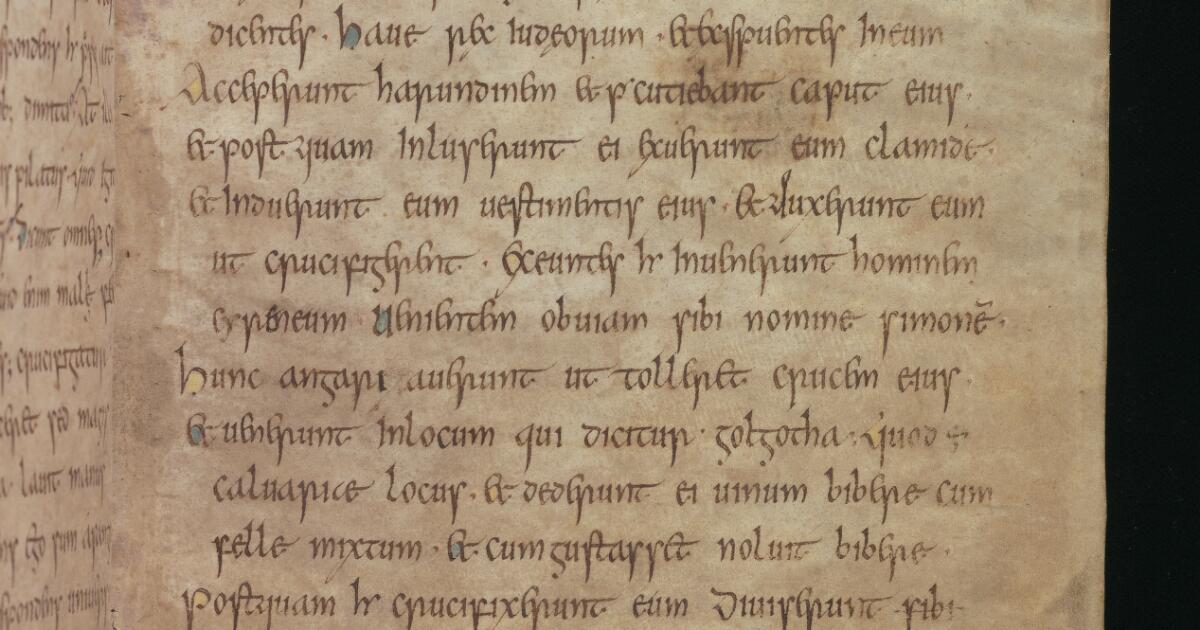 dicentes . haue rex Iudeorum . et exspuentes Ineum
Acceperunt harundinem et p'cutiebant caput eius.
et postquam Inluserunt ei exuerunt eum clamide.
et Induerunt eum uestimentis eius . et duxerunt eum
ut crucifigerent . Exeuntes hr Inuenerunt hominem
cyreneum Uenientem obuiam sibi nomine simonē.
hunc angari auerunt ut tolleret crucem eius.
et uenerunt Inlocum qui dicitur golgotha . quod ÷
caluariae locus . et dederunt ei uinum bibere cum
felle mixtum . et cum gustasset noluit bibere .
Postquam hr crucifixerunt eum Diuiserunt sibi